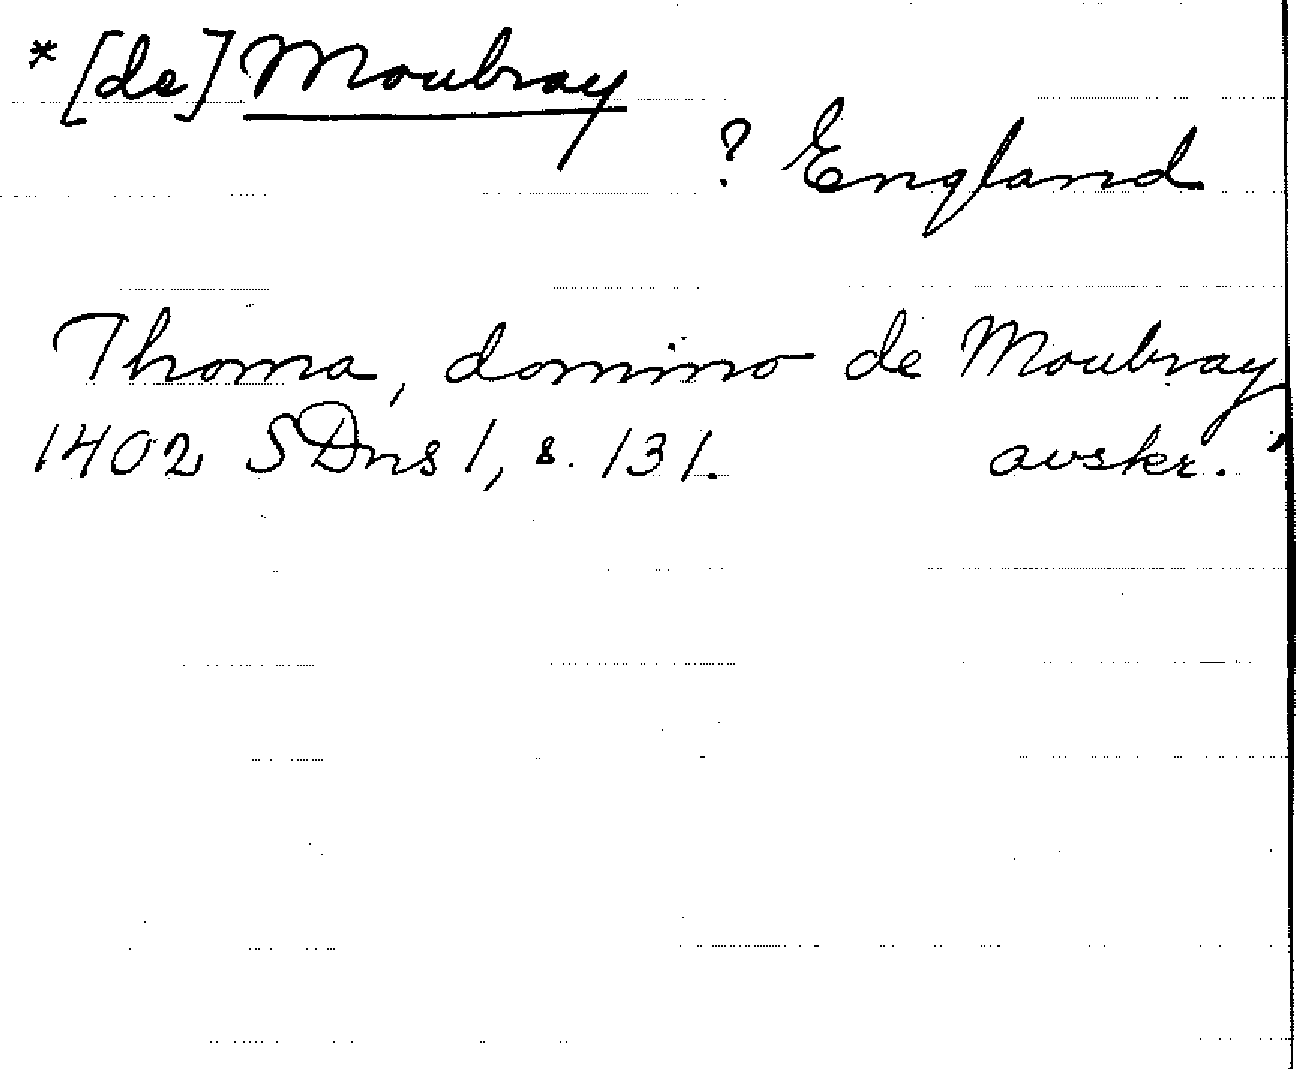 * [de] Moubray
? England
Thoma, domino de Moubray
1402 SDns 1, s. 131. avskr.